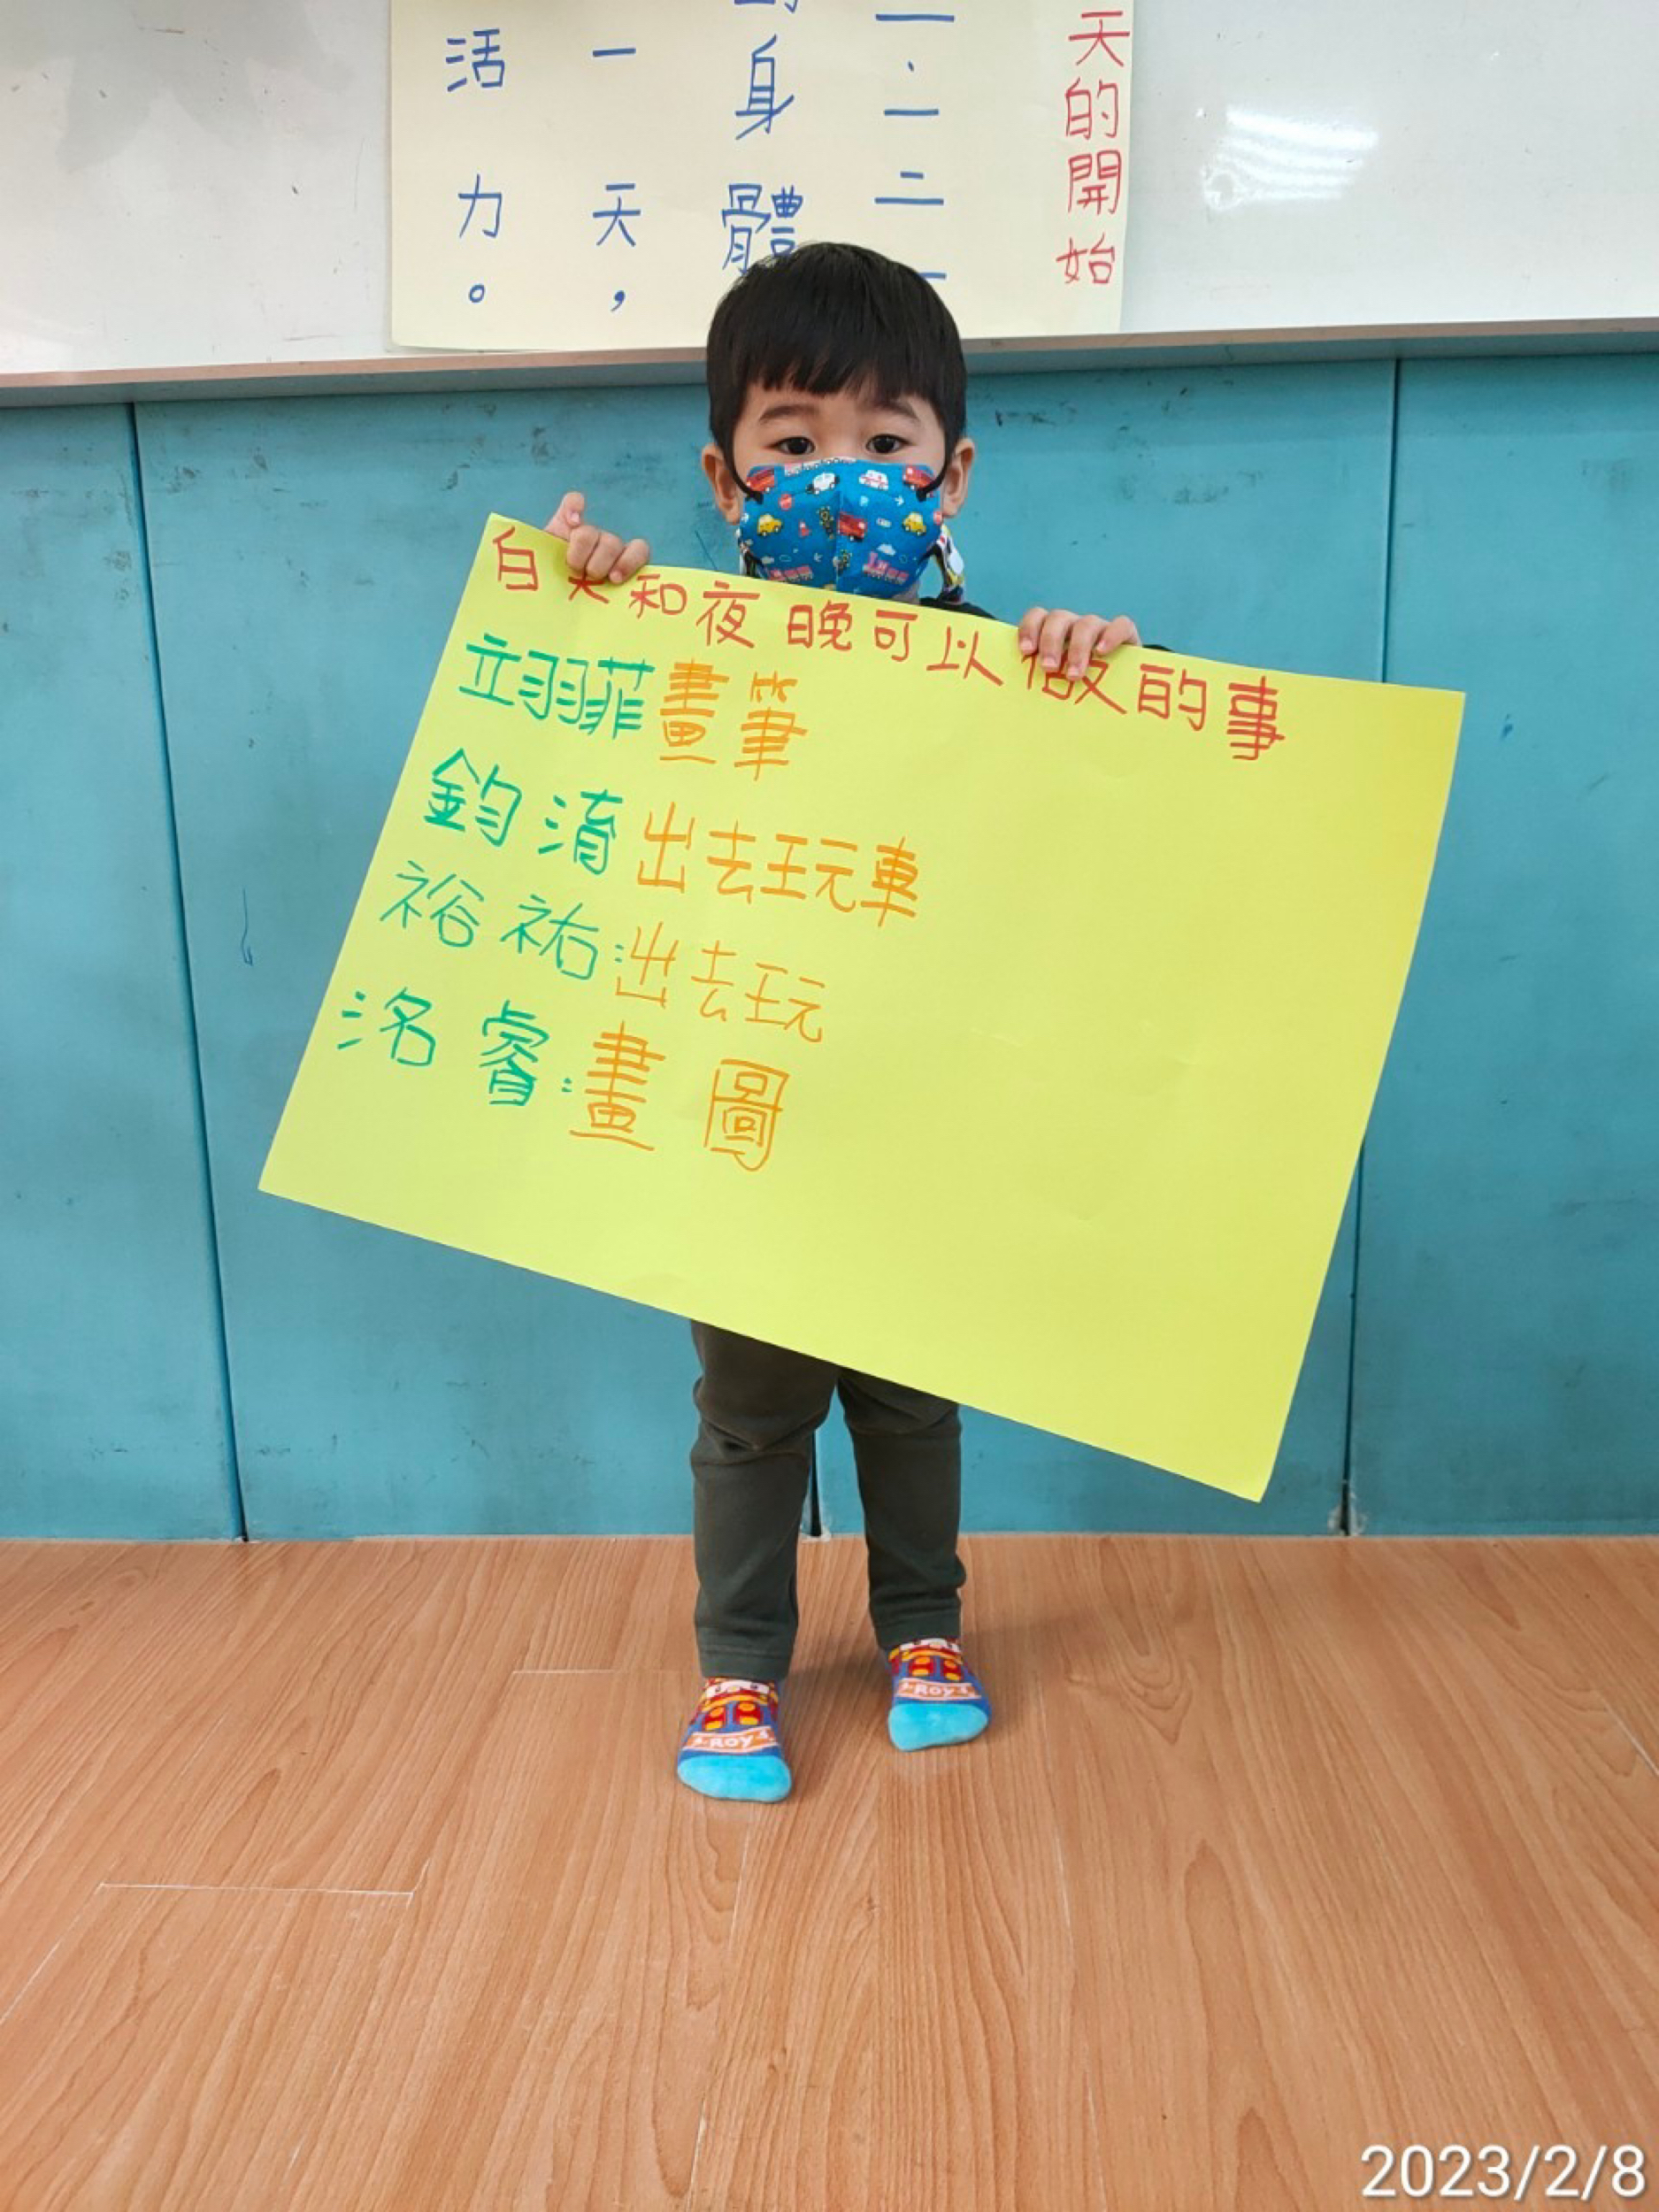 天的開始
二、一二
身體
一天，
活力。
白天和夜晚可以做的事
立羽菲畫筆
鈞淯出去玩車
裕祐:出去玩
洺睿:畫圖
ROY
ROY
2023/2/8